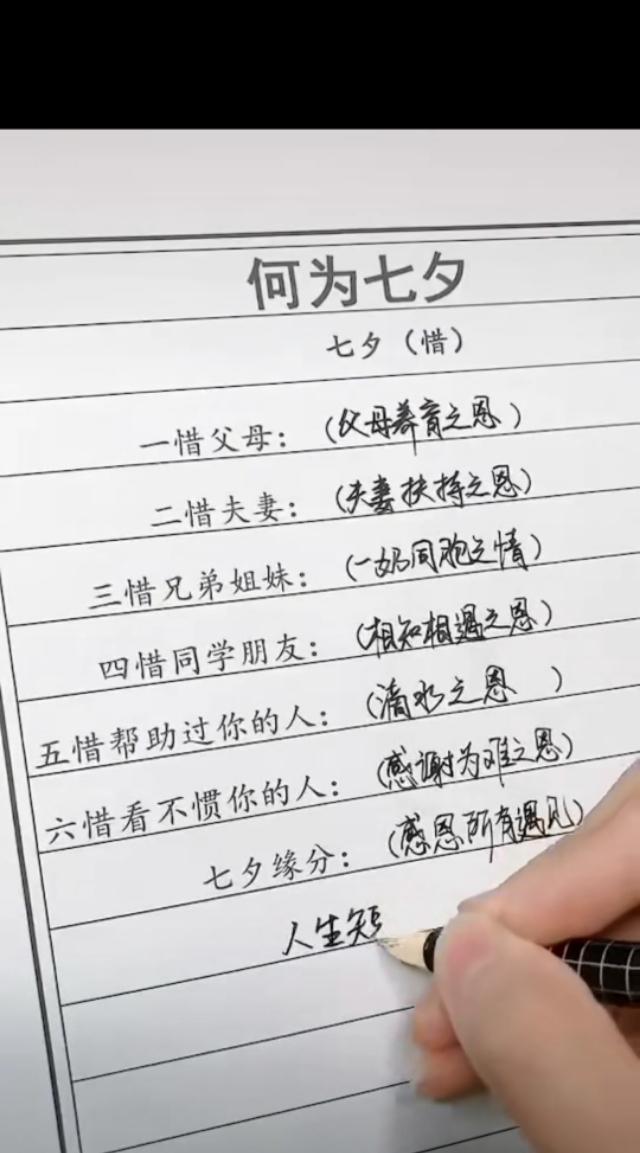 何为七夕
七夕（惜）
一惜父母：（父母养育之恩）
二惜夫妻：（夫妻扶持之恩）
三惜兄弟姐妹：（一奶同胞之情）
四惜同学朋友：（相知相遇之恩）
五惜帮助过你的人：（滴水之恩 ）
六惜看不惯你的人：（感谢为难之恩）
七夕缘分：（感恩所有遇见）
人生短